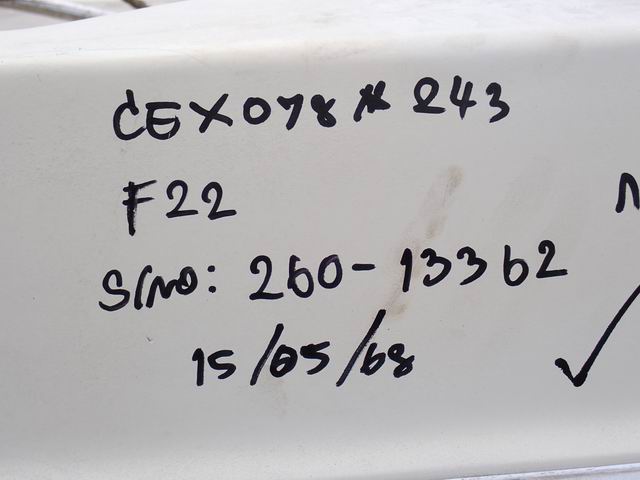 CEX078*243
F22
S/NO: 260-13362
15/05/68